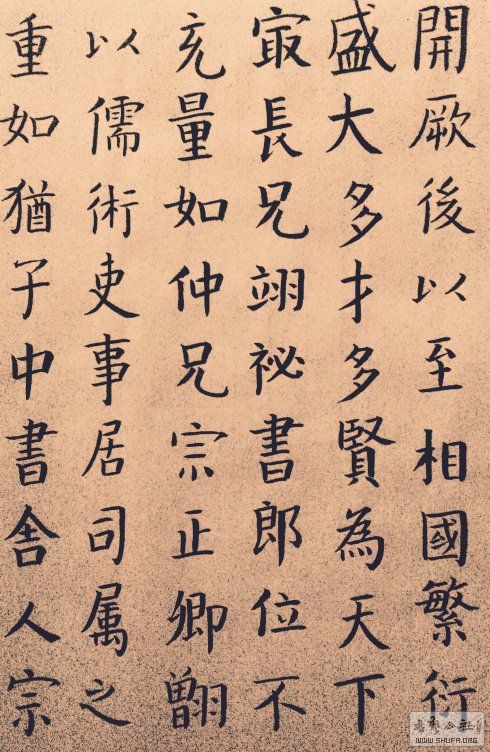 開厥後以至相國繁衍
盛大多才多賢為天下
㝡長兄翊祕書郎位不
充量如仲兄宗正卿
以儒術吏事居司属之
重如猶子中書舍人宗
WWW.SHUFA.ORG